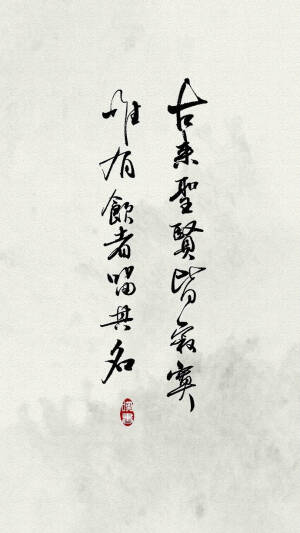 古来聖賢皆寂寞
唯有飲者留其名